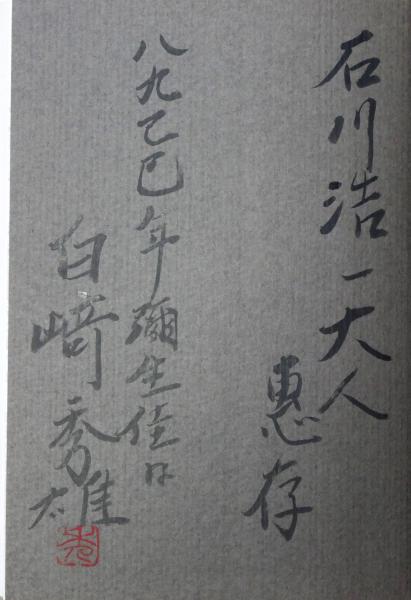 石川浩一大人
惠存
八九己巳年彌生佳日
白崎秀雄
秀